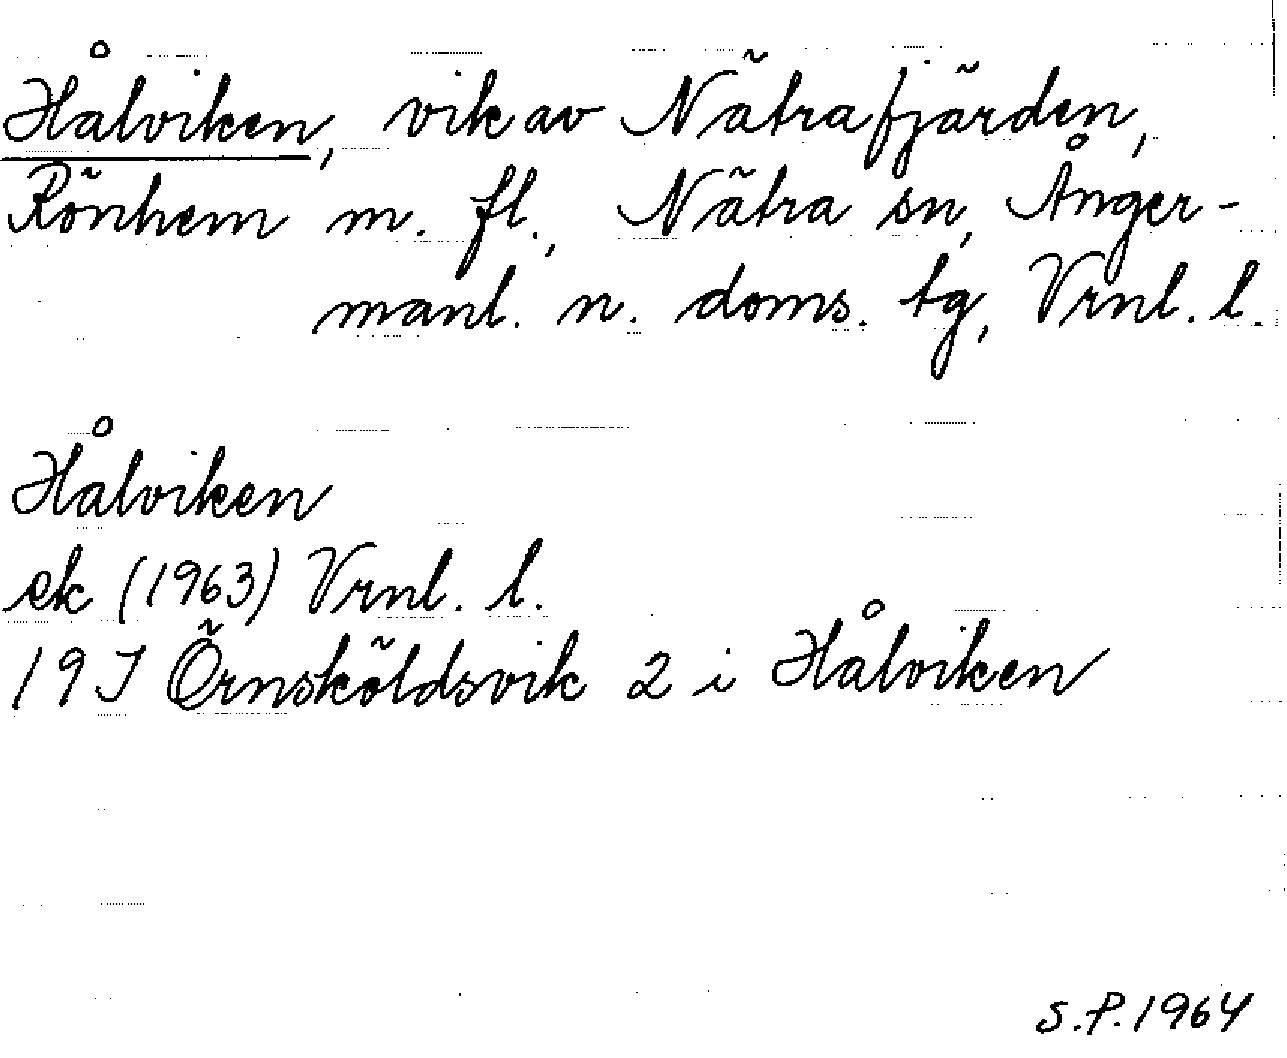 Hålviken, vik av Nätrafjärden,
Rönhem m. fl., Nätra sn, Ånger-
manl. n. doms. tg, Vrnl. l.
Hålviken
ek (1963) Vrnl. l.
19 J Örnsköldsvik 2 i Hålviken
S.P. 1964